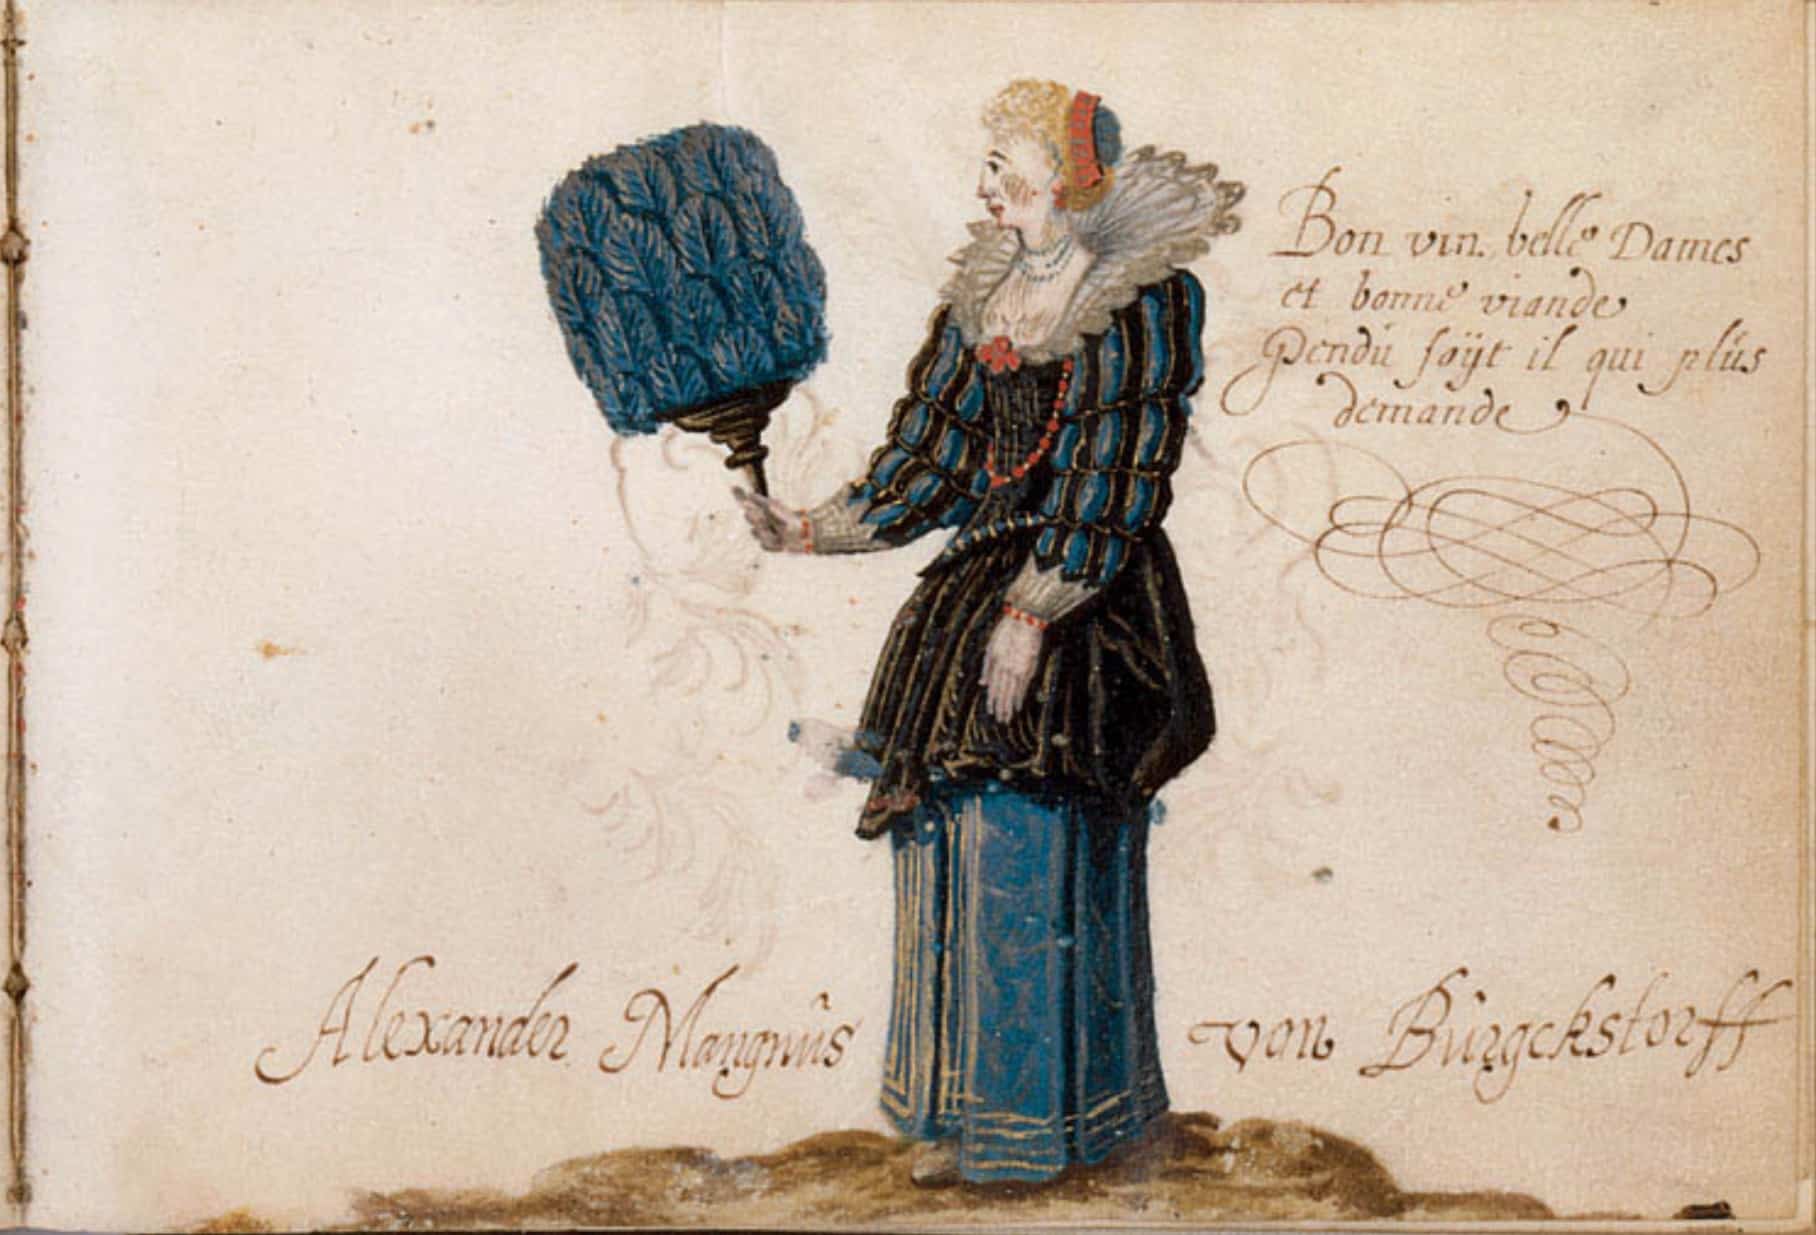 Bon vin, belle Dames
et bonne viande
Pendu soÿt il qui plus
demande
Alexander Mangnûs von Bûrgckstorff